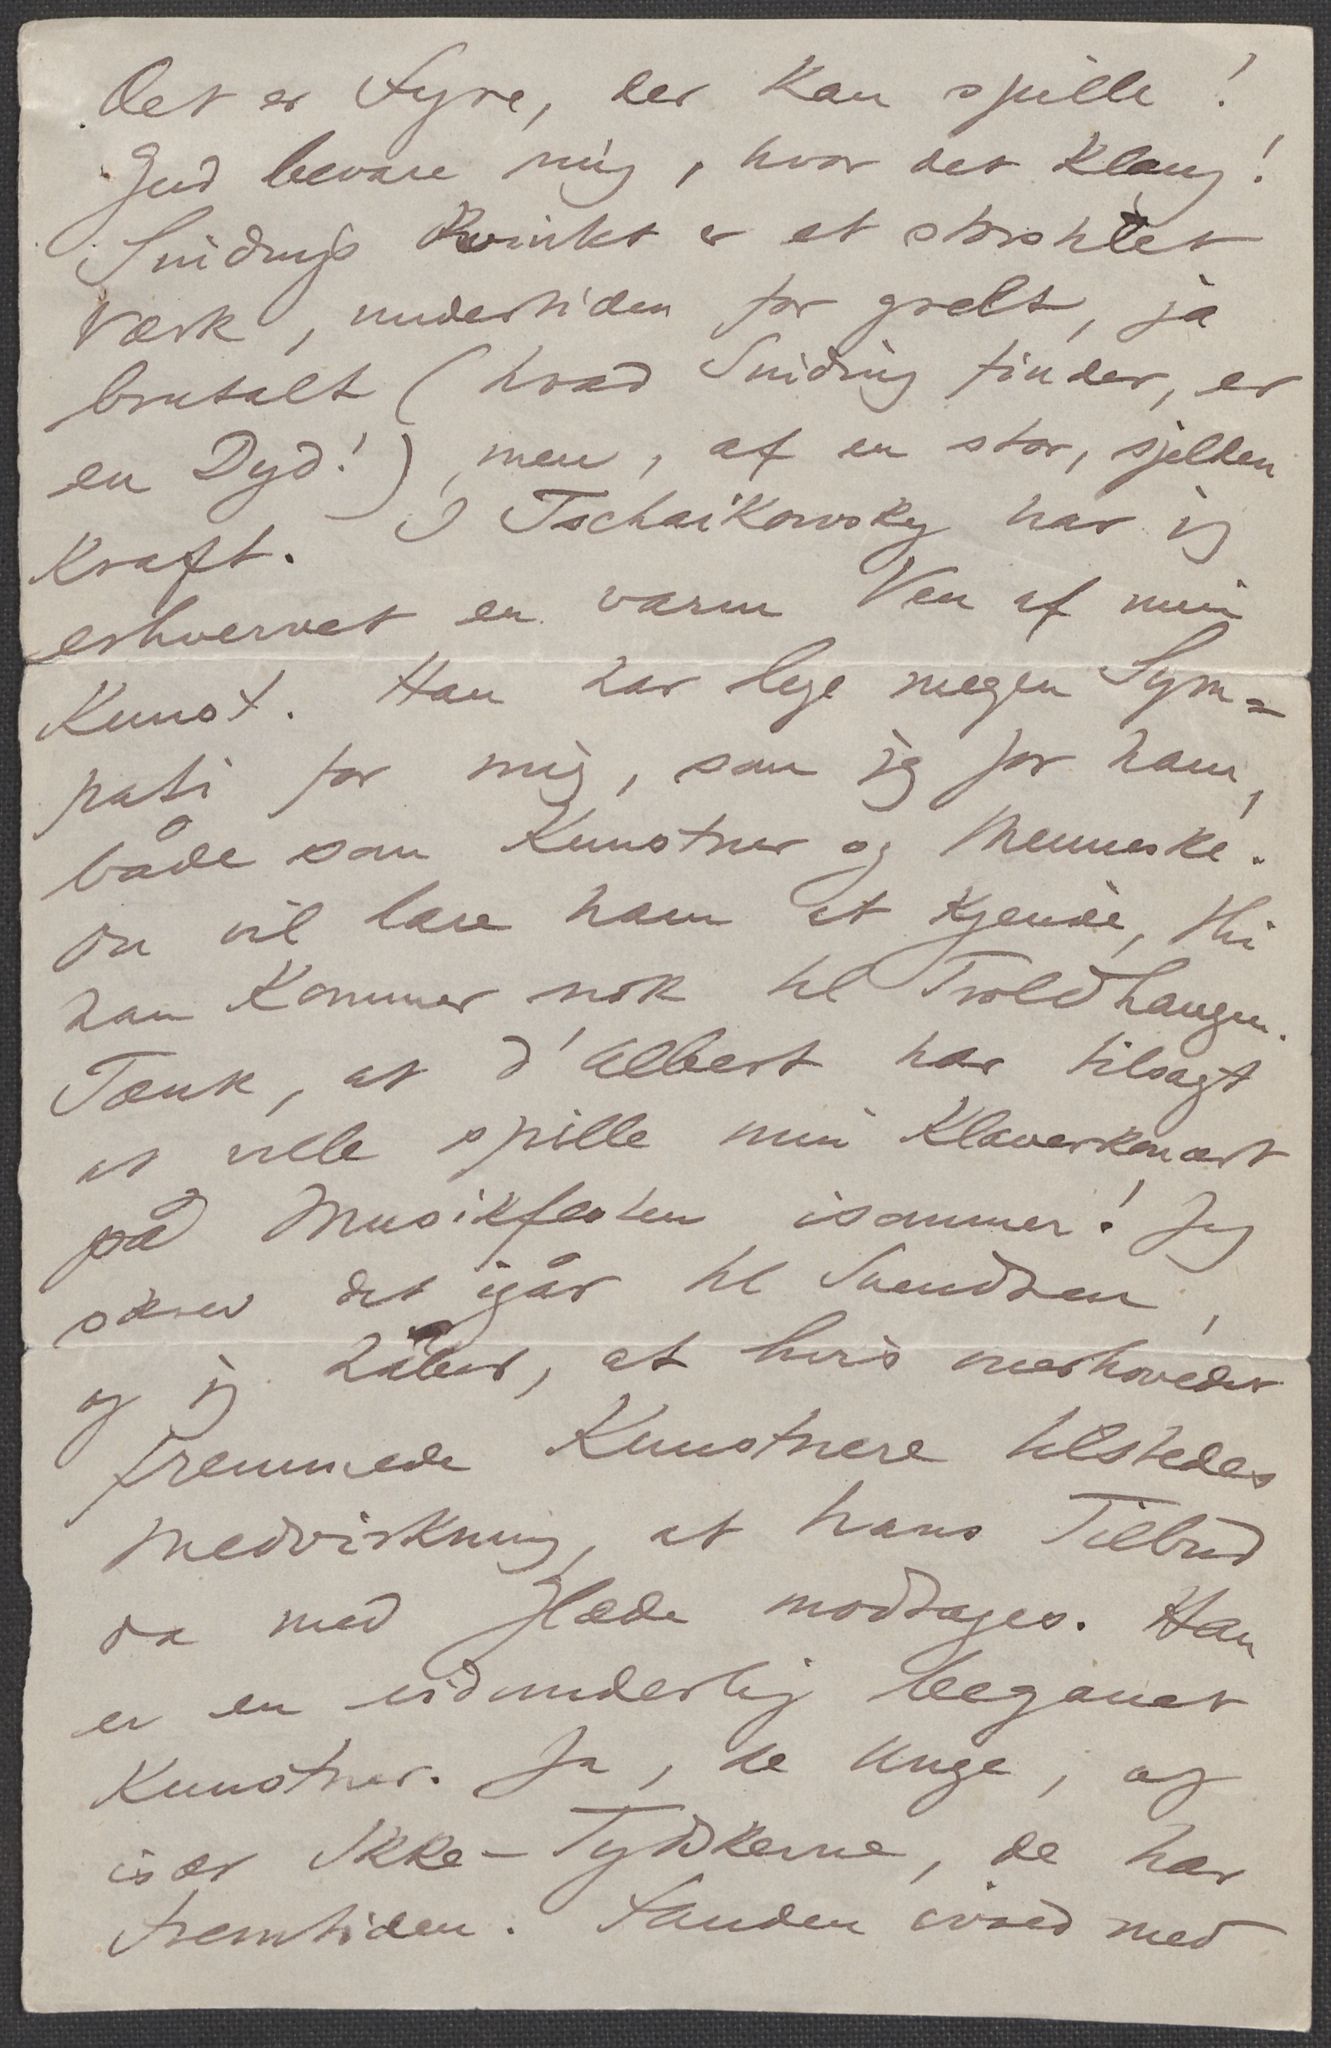 Det er Fyre, der kan spille!
Gud bevare mig, hvor det klang!
Sindings Kvintet er et storslået
Værk, undertiden for grelt, ja
brutalt (hvad Sinding finder, er
en Dyd!) men, af en stor, sjelden
Kraft. I Tschaikowsky har jeg
erhvervet en varm Ven af min
Kunst. Han har lige megen Sym=
pati for mig, som jeg for ham,
både som Kunstner og Menneske.
Du vil lære ham at kjende, thi
han kommer nok til Troldhaugen.
Tænk, at d'Albert har tilsagt
at ville spille min Klaverkoncert
på Musikfesten isommer! Jeg
skrev det igår til Svendsen,
og jeg håber, at hvis overhovedet
fremmede Kunstnere tilstedes
Medvirkning, at hans Tilbud
da med Glæde modtages. Han
er en vidunderlig begavet
Kunstner. Ja, de unge, og
især Ikke-Tyskerne, de har
Fremtiden. Fanden ivold med